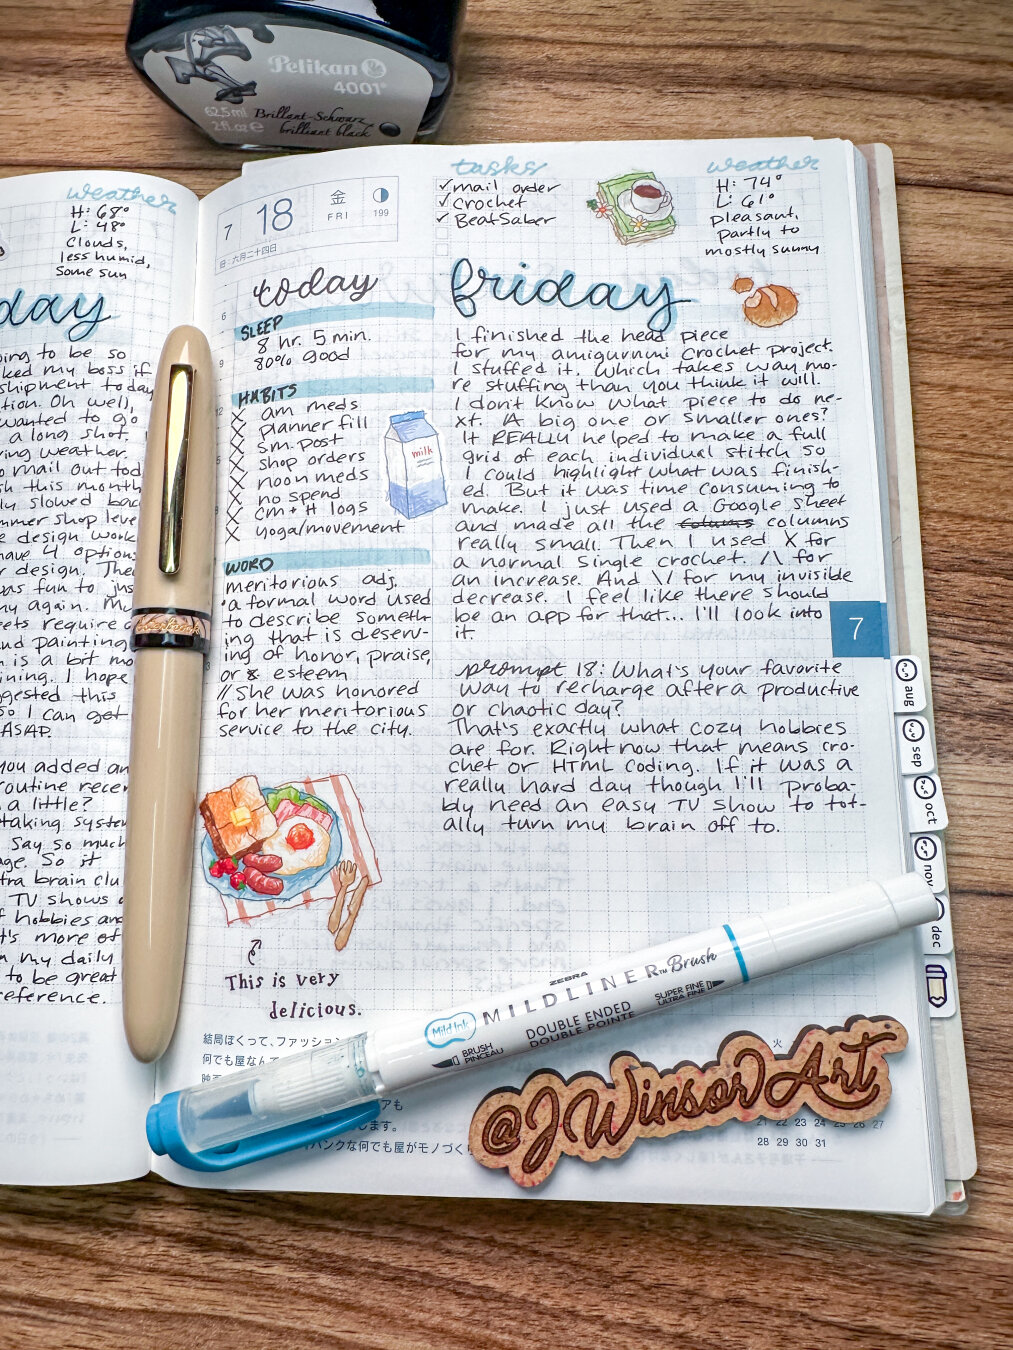 Pelikan
4001®
62,5 ml
2 fl.oz ℮
Brillant-Schwarz
brilliant black
weather
H: 68°
L: 48°
Clouds,
less humid,
Some sun
day
to be so
ked my boss if
shipment today
tion. Oh well,
wanted to go
a long shot.
ring weather.
mail out tod
sh this month
ly slowed back
mmer shop leve
e design work
have 4 options
r design. The
was fun to jus
ny again. Mu
ets require
and painting
is a bit mo
ining. I hope
ggested this
so I can get
ASAP.
you added an
routine recen
a little?
taking system
Say so much
age. So it
tra brain clu
TV shows
f hobbies and
t's more of
n my daily
to be great
reference.
7 18 金
FRI
199
旧・六月二十四日
today
SLEEP
8 hr. 5 min.
80% good
HABITS
X am meds
X planner fill
X sm. post
X shop orders
X noon meds
X no spend
X cm + H logs
X yoga/movement
milk
WORD
meritorious adj.
• a formal word used
to describe someth-
ing that is deserv-
ing of honor, praise,
or & esteem
// She was honored
for her meritorious
service to the city.
This is very
delicious.
tasks
✓ mail order
✓ Crochet
✓ BeatSaber
weather
H: 74°
L: 61°
pleasant,
partly to
mostly sunny
friday
I finished the head piece
for my amigurumi Crochet project.
I stuffed it. Which takes way mo-
re stuffing than you think it will.
I don't know what piece to do ne-
xt. A big one or smaller ones?
It REALLY helped to make a full
grid of each individual stitch so
I could highlight what was finish-
ed. But it was time consuming to
make. I just used a Google Sheet
and made all the colums columns
really small. Then I used X for
a normal single crochet. /\ for
an increase. And \/ for my invisible
decrease. I feel like there should
be an app for that... I'll look into
it.
prompt 18: What's your favorite
way to recharge after a productive
or chaotic day?
That's exactly what cozy hobbies
are for. Right now that means cro-
chet or HTML Coding. If it was a
really hard day though I'll proba-
bly need an easy TV show to tot-
ally turn my brain off to.
7
aug
sep
oct
nov
dec
結局ぼくって、ファッション
何でも屋なんて
映画
アも
します。
ハンクな何でも屋がモノづくり
Mild Ink
ZEBRA
MILDLINER™ Brush
BRUSH
PINCEAU
DOUBLE ENDED
DOUBLE POINTE
SUPER FINE
ULTRA FINE
@JWinsorArt
火
21 22 23 24 25 26 27
28 29 30 31